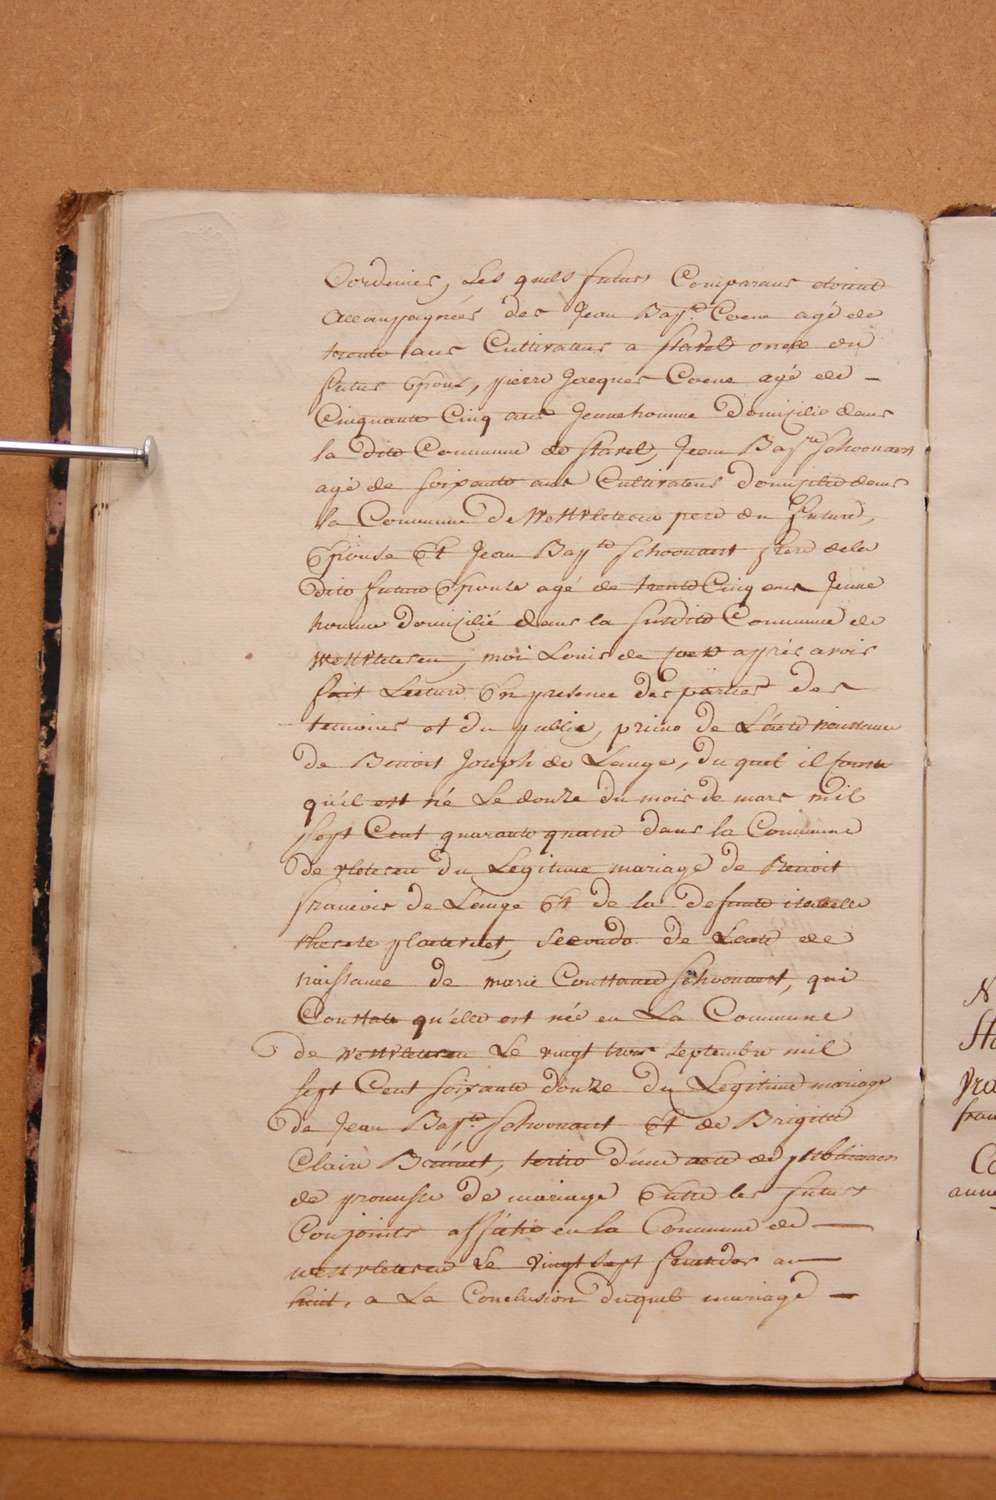 Cordenier, Les quels futurs Comparans etoient
accompagnées des Jean Bapte. Coene agé de
trente ans Cultivateur a stavel oncle du
futur Epoux, pierre Jacques Coene agé de —
Cinquante Cinq ans Jeune homme domicilié dans
la dite Commune de stavel, Jean Bapte schoonaert
agé de soixante ans Cultivateur domicilié dans
la Commune De Westvleteren pere du future,
Epouse Et Jean Bapte schoonaert frere dela
dite future Epouse agé de trente Cinq ans Jeune
homme domicilié dans la susdite Commune de
westvleteren, moi Louis de après avoir
fait Lecture En presence des parties des
temoins et du public, primo de L'acte naissance
de Benoit Joseph de Lange, du quel il
qu'il est né Le douze du mois de mars mil
sept Cent quarante quatre dans la Commune
de vleteren du Legitime mariage de Benoit
francois de Lange Et de la defunte isabelle
therese, secondo de Lacte de
naissance de marie Constance Schoonaert, qui
Constate qu'elle est née en La Commune
de westvleteren Le vingt trois septembre mil
sept Cent soixante douze du Legitime mariage
de Jean Bapte Schoonaert et de Brigitte
Claire, tertio d'une acte de publication
de promesse de mariage Entre les futurs
Conjoints affiché en la Commune de —
westvleteren Le vingt sept an —
huit, a La Conclusion duquel mariage —
N
Sta
fran
Ca
anne